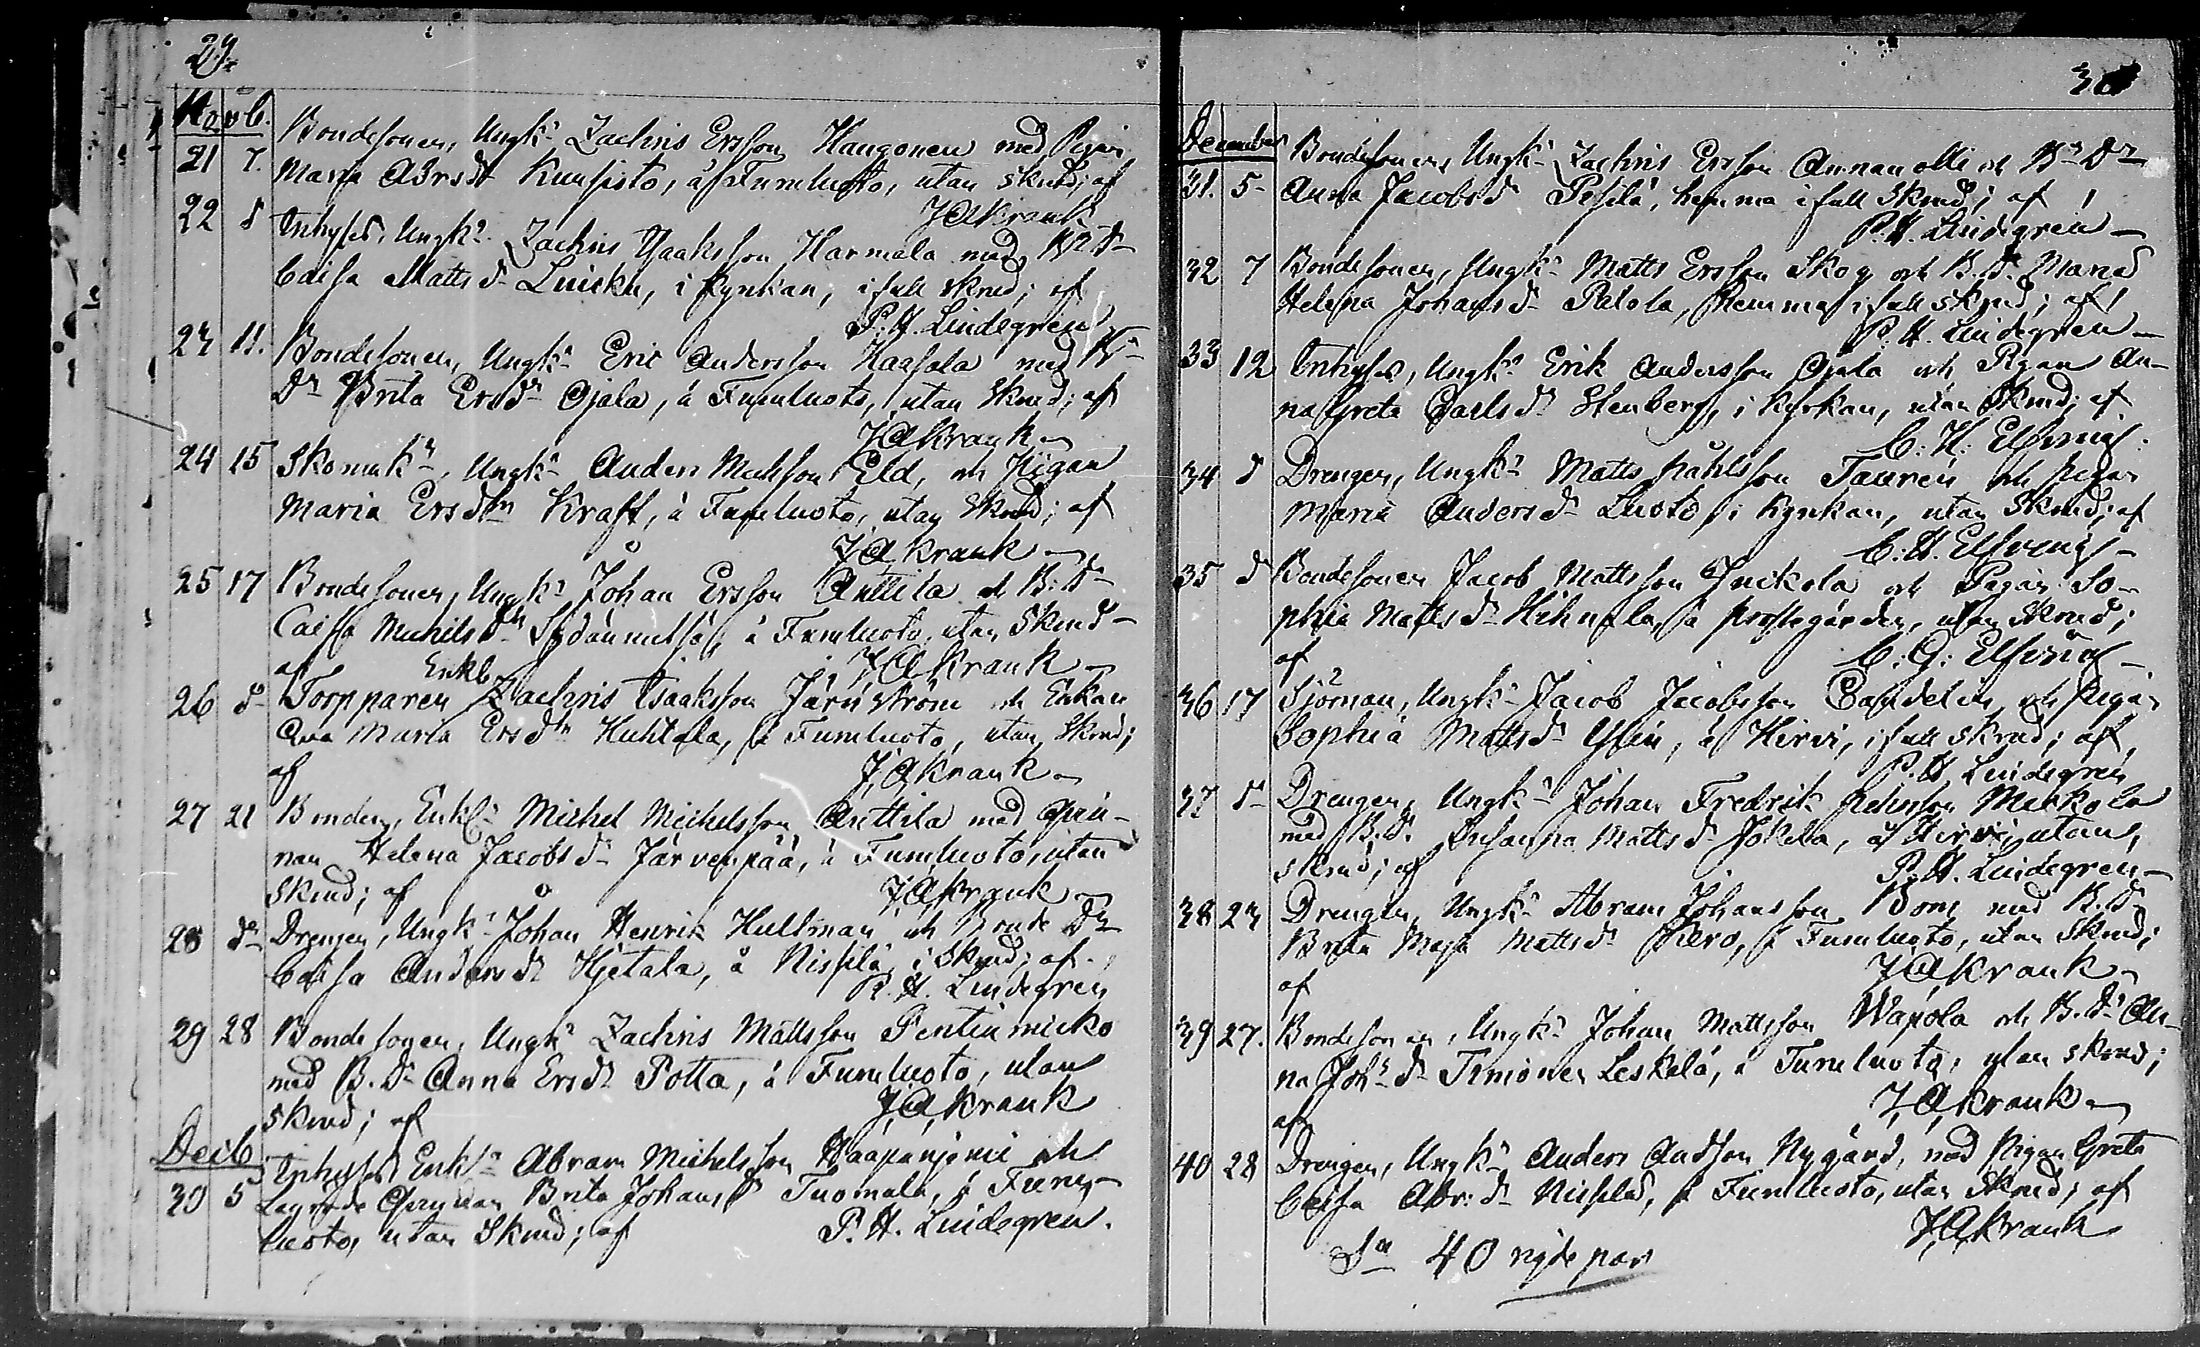 29.
Novb.
21 7. Bondesonen, Ungk. Zachris Ersson Haugonen med Pigan
Maria Abrsdr Kunsisto, å Fumluoto, utan skrud; af
J A Krank
22 d Inhyses, Ungk. Zachris Isaksson Harmala med B. Dr
Caisa Matts dr Luicku, i kyrkan, i full skrud; af
P. H. Lindegren
23 11. Bondesonen, Ungk. Eric Andersson Haasala med B.
Dr Brita Ersdr Ojala, å Fumluoto, utan Skrud; af
J A Krank
24 15 Skomak., Ungk. Anders Mattsson Eld, och Pigan
Maria Ersdtr Kraft, å Fumluoto, utan Skrud; af
J A Krank
25 17 Bondesonen, Ungk. Johan Ersson Anttila och B. Dr
Caisa Michelsdr Sydänmetsä, å Fumluoto, utan Skrud
af J A Krank
26 d Torpparen Enkl. Zachris Isaksson Järnström och Enkan
Eva Maria Ersdtr Huhtala, å Fumluoto, utan Skrud;
af J A Krank
27 21 Bonden, Enkl. Michel Michelsson Anttila med Qvin-
nan Helena Jacobs dr Järvenpää, å Fumluoto, utan
Skrud; af J A Krank
28 d Drengen, Ungk. Johan Henrik Hultman och Bonde Dr
Caisa Anders dr Hjetala, å Nissilä, i Skrud; af
P. H. Lindegren
29 28 Bondesonen, Ungk. Zachris Mattsson Pentinmicko
med B. Dr Anna Ersdr Potta, å Fumluoto, utan
skrud; af J A Krank
Decb
30 5 Inhyses Enkl. Abram Michelsson Haapaniemi och
Lägrade Qvinnan Brita Johans dr Tuomala, å Fum-
luoto, utan Skrud; af P. H. Lindegren.
30
December
31. 5 Bondesonen, Ungk. Zachris Ersson Annanolli och B. Dr
Anna Jacobsd Pesilä, hemma i full Skrud; af
P. H. Lindegren
32 7 Bondesonen, Ungk. Matts Ersson Skog och B. Dr Maria
Helena Johansd Palola, hemma i full skrud; af
P. H. Lindegren
33 12 Inhyses, Ungk. Erik Andersson Ojala och Pigan An-
na Greta Carls dr Stenberg, i kyrkan, utan Skrud; af
C. H. Elfving
34 d Drengen, Ungk. Matts Påhlsson Taurén och pigan
Maria Anders dr Luoto, i Kyrkan, utan Skrud; af
C. H. Elfving
35 d Bondesonen Jacob Mattsson Ynikola och Pigan So-
phia Matts dr Hihnala, å prostgården, utan skrud;
af C. G. Elfving
36 17 Sjöman, Ungk. Jacob Jacobsson Candelin och pigan
Sophia Matts dr Ylin, å Hirvi, i full skrud; af
P. H. Lindegren
37 d Drengen, Ungk. Johan Fredrik Johnson Markola
med B. Dr Susanna Matts dr Jokela, å Hirvi, utan
skrud; af P. H. Lindegren
38 23 Drengen, Ungk. Abram Johansson Bom med B. Dr
Brita Maja Matts dr Pervo, å Fumluoto, utan Skrud;
af J A Krank
39 27. Bondesonen, Ungk. Johan Mattsson Wäpola och B. Dr An-
na Joh. dr Timonen Leskelä, å Fumluoto, utan skrud;
af J A Krank
40 28 Drengen, Ungk. Anders Andsson Nygård, med Pigan Greta
Caisa Abr. dr Nissilä, å Fumluoto, utan Skrud; af
J A Krank
Sa 40 vigde par